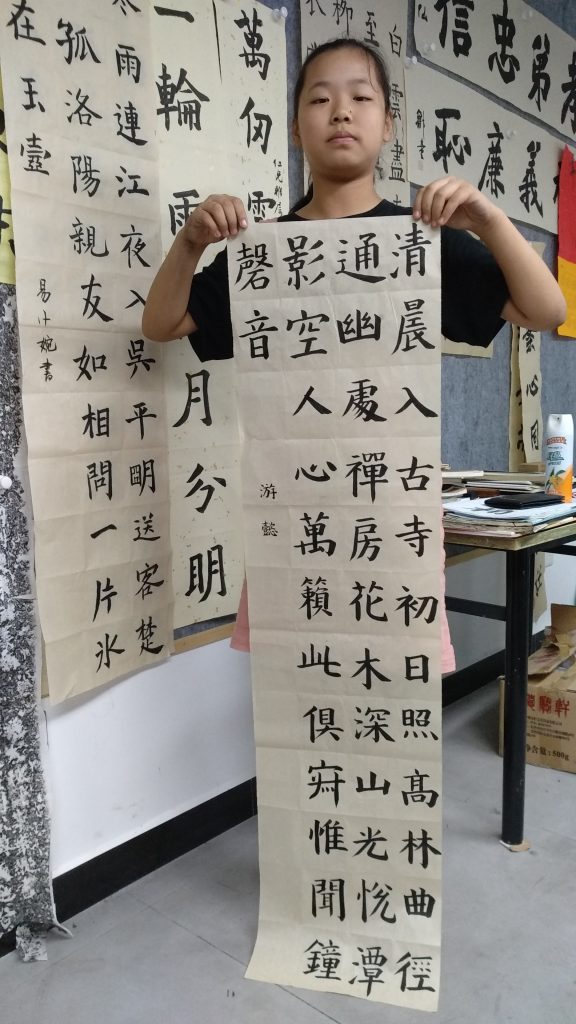 清晨入古寺初日照髙林曲徑
通幽處禪房花木深山光悅潭
影空人心萬籟此俱寂惟聞鐘
磬音
游懿
孝弟忠信
義廉恥
白雲盡
至
柳
萬仞
一輪
月分明
寒雨連江夜入吳平明送客楚
孤洛陽親友如相問一片氷
在玉壺
書
心
含量:500g